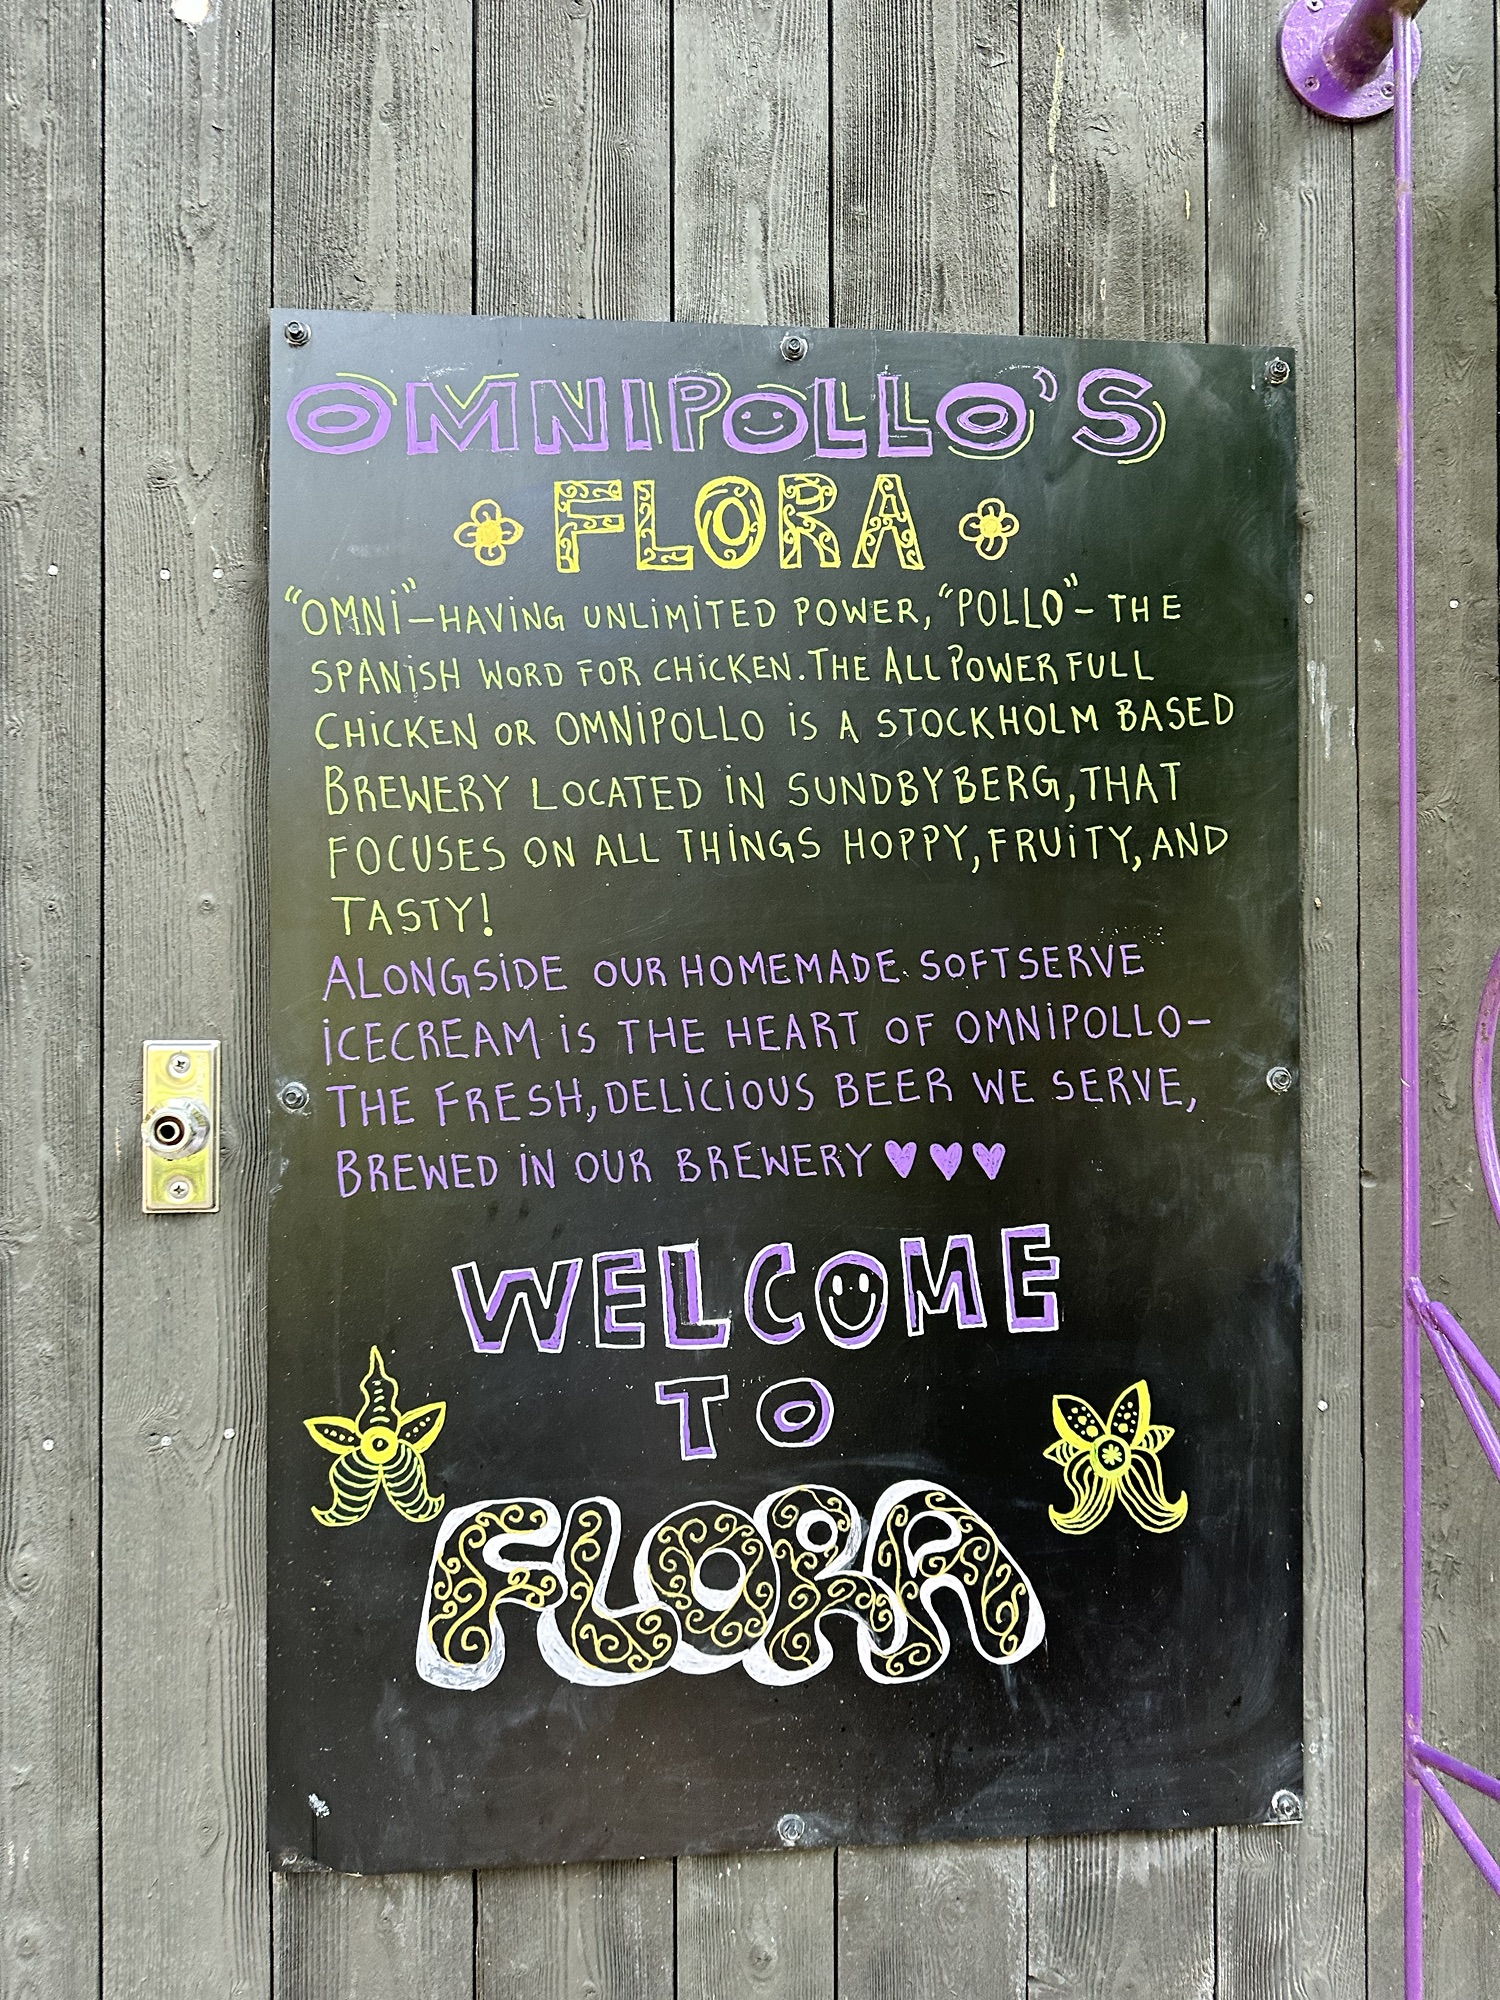 OMNIPOLLO'S
FLORA
"OMNi"-HAViNG UNLiMiTED POWER, "POLLO"- THE
SPANiSH WORD FOR CHiCKEN. THE ALLPOWERFULL
CHiCKEN OR OMNiPOLLO iS A STOCKHOLM BASED
BREWERY LOCATED iN SUNDBYBERG, THAT
FOCUSES ON ALL THiNGS HOPPY, FRUiTY, AND
TASTY!
ALONGSiDE OUR HOMEMADE SOFTSERVE
iCECREAM iS THE HEART OF OMNiPOLLO-
THE FRESH, DELiCiOUS BEER WE SERVE,
BREWED iN OUR BREWERY ♥♥♥
WELCOME
TO
FLORA